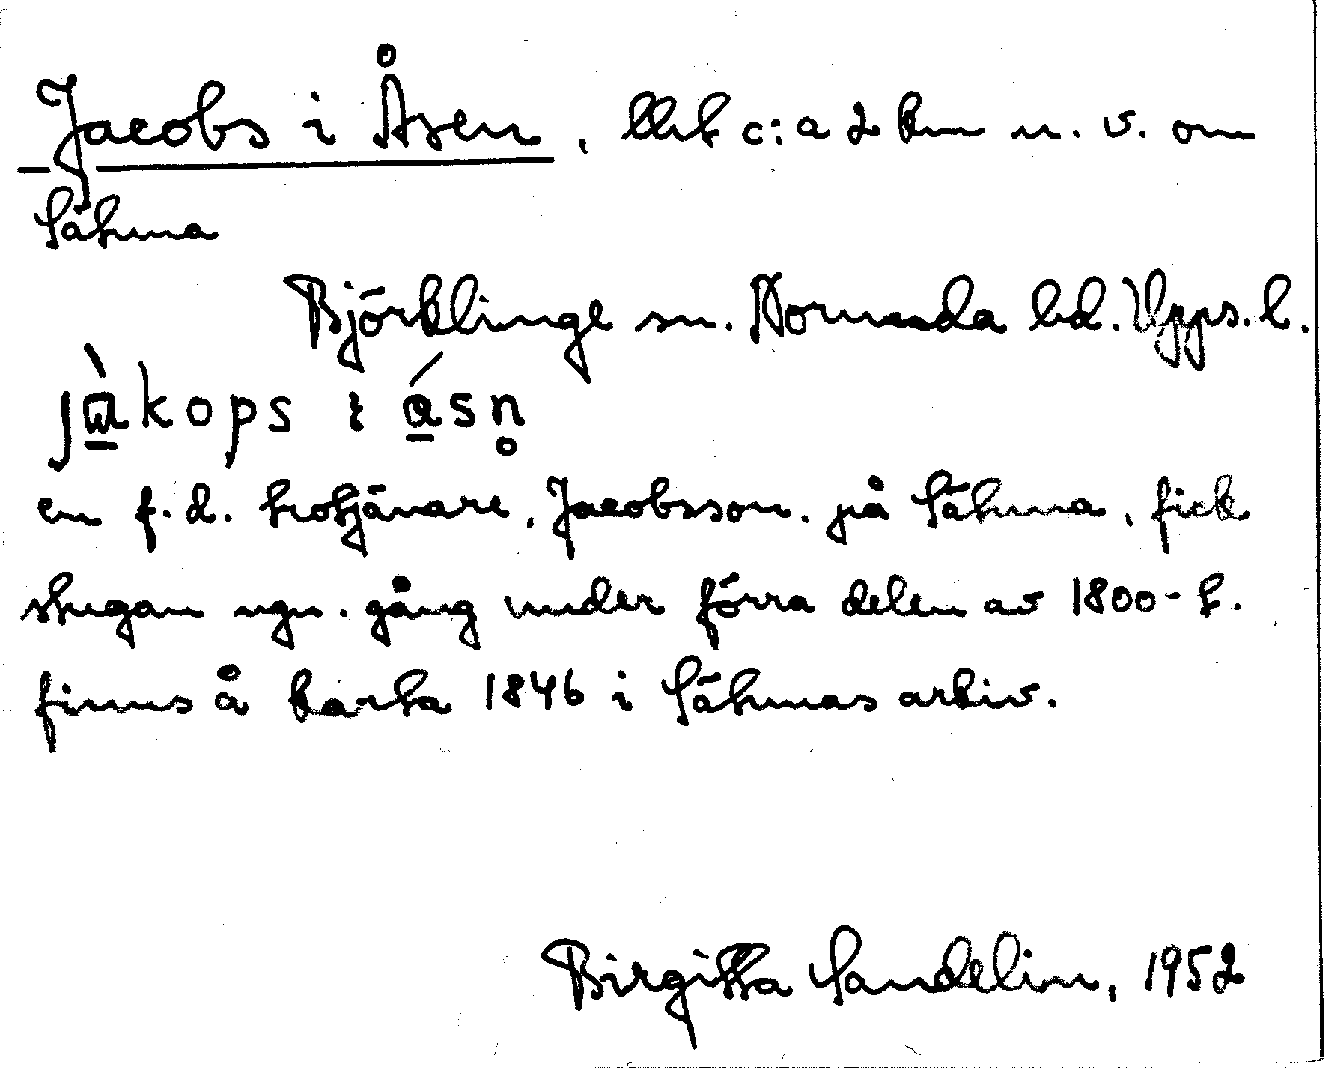 Jacobs i Åsen, llt c:a 2 km n. v. om
Sätuna
Björklinge sn. Norunda hd. Upps. l.
jàkops ɩ ásn̥
en f.d. trotjänare, Jacobsson, på Sätuna, fick
stugan ngn. gång under förra delen av 1800-t.
finns å karta 1846 i Sätunas arkiv.
Birgitta Sandelin, 1952